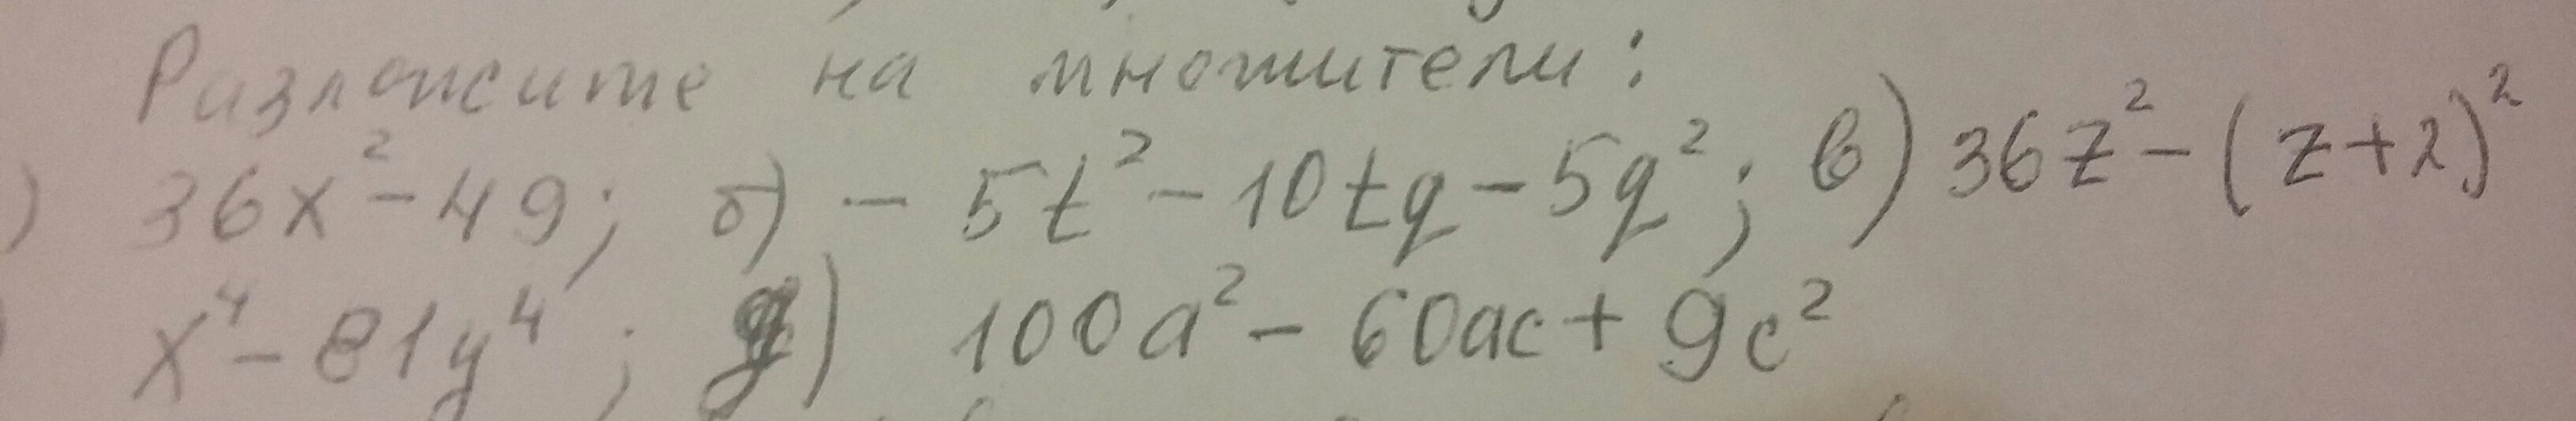 Разложите на множители:
) 36x² - 49; б) - 5t² - 10tq - 5q²; в) 36z² - (z+2)²
) x⁴ - 81y⁴; д) 100a² - 60ac + 9c²